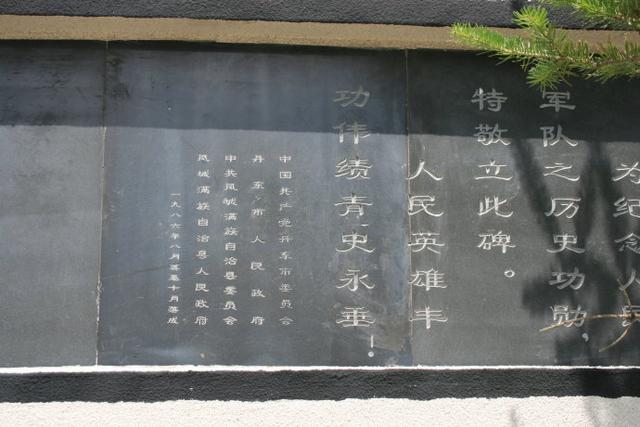 为纪念人民
军队之历史功勋，
特敬立此碑。
人民英雄丰
功伟绩青史永垂！
中国共产党丹东市委员会
丹东市人民政府
中共凤城满族自治县委员会
凤城满族自治县人民政府
一九八六年八月奠基十月落成